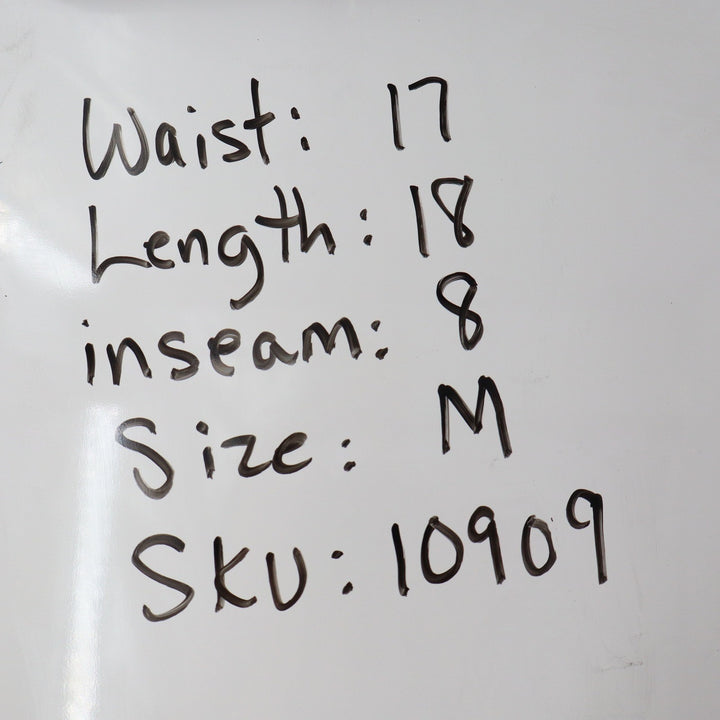 Waist: 17
Length: 18
inseam: 8
Size: M
SKU: 10909